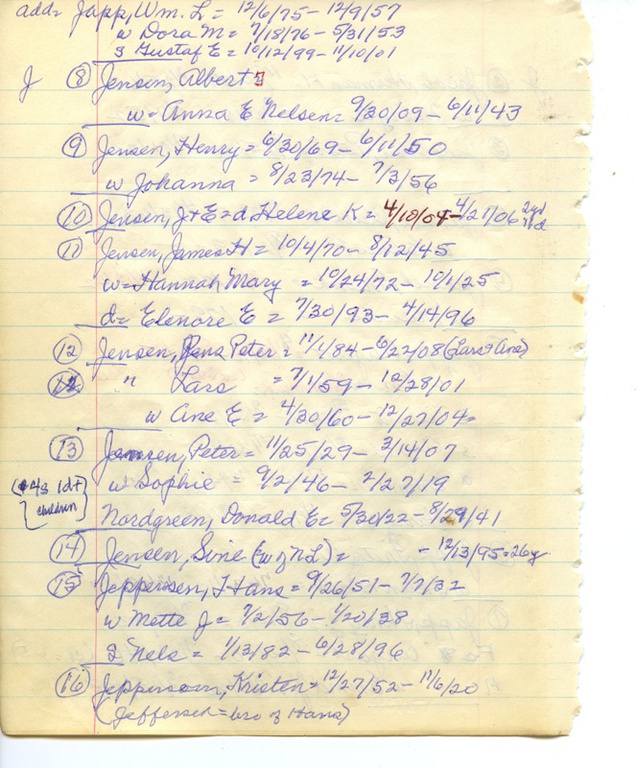 add= Japp, Wm. L = 12/6/75 - 12/9/57
w Dora M = 7/18/76 - 5/31/53
s Gustaf E = 10/12/99 - 11/10/01
J (8) Jensen, Albert
w = Anna E Nelsen = 9/30/09 - 6/11/43
(9) Jensen, Henry = 6/30/69 - 6/11/50
w Johanna = 8/23/74 - 7/3/56
(10) Jensen, J + E = d Helene K = 4/10/04 - 4/21/06 2y
(11) Jensen, James H = 10/4/70 - 8/12/45
w = Hannah Mary = 10/24/72 - 10/1/25
d = Elenore E = 7/30/93 - 4/14/96
(12) Jensen, Jens Peter = 11/1/84 - 6/22/08 (Lars & Ane)
" Lars = 7/1/59 - 12/28/01
w Ane E = 4/30/60 - 12/27/04
(13) Jensen, Peter = 11/25/29 - 3/14/07
w Sophie = 9/2/46 - 2/27/19
(4s 1d + children)
Nordgreen, Donald E = 5/30/22 - 8/29/41
(14) Jensen, Sine (w of N L) = - 12/13/95 = 26y
(15) Jeppersen, Hans = 9/26/51 - 7/7/32
w Mette J = 7/2/56 - 1/20/38
s Nels = 1/13/82 - 6/28/96
(16) Jeppersen, Kristen = 12/27/52 - 11/6/20
(Jeffersen = bro of Hans)